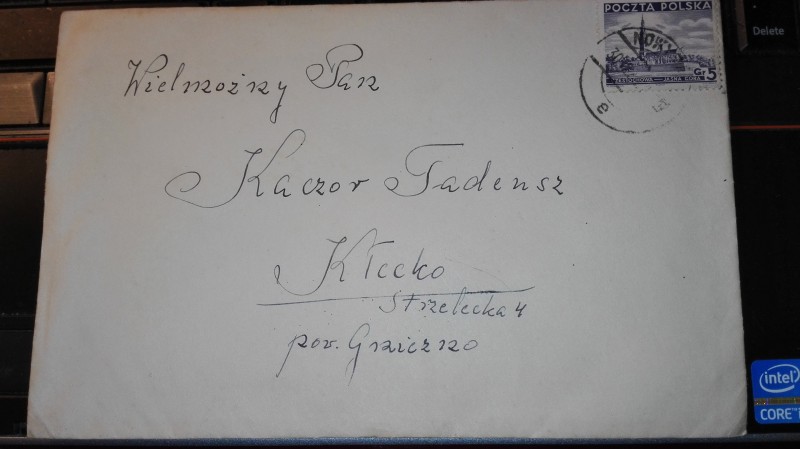 POCZTA POLSKA
Gr 5
CZĘSTOCHOWA — JASNA GÓRA
Wielmożny Pan
Kaczor Tadeusz
Kłecko
Strzelecka 4
pow. Gniezno
Delete
intel
CORE